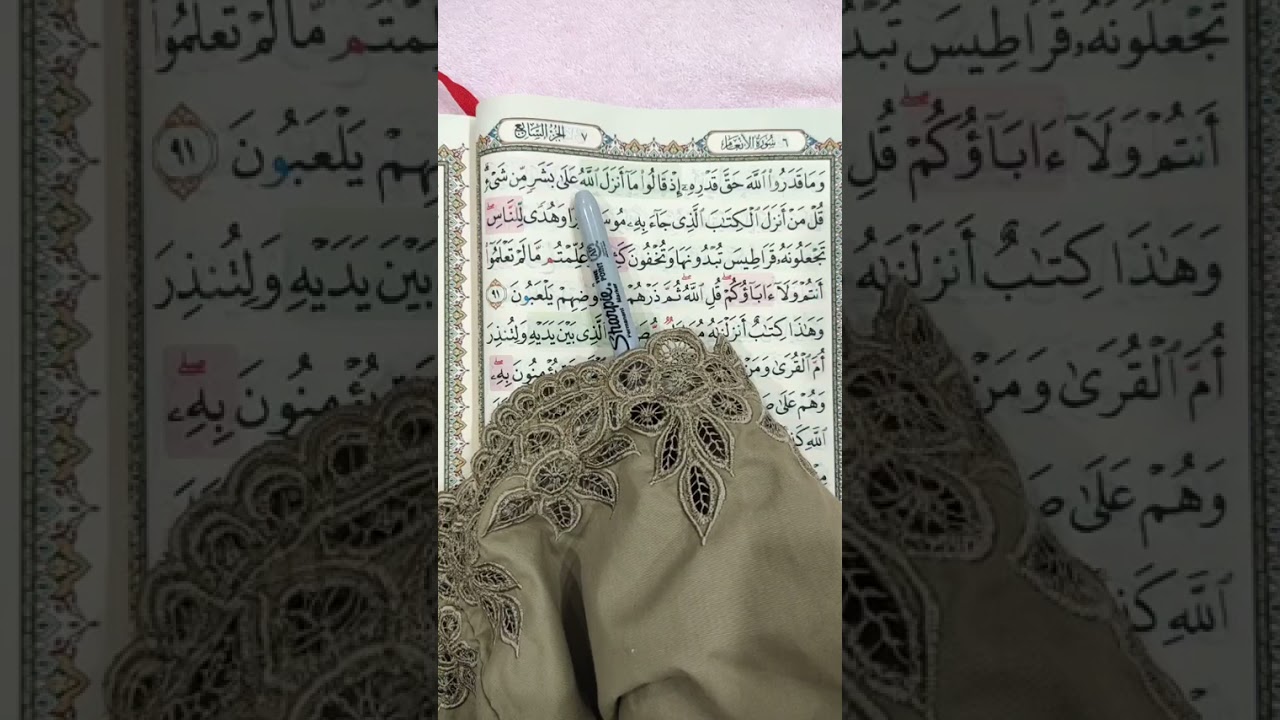 ٦ سُورَةُ الأَنعَامِ
٧ الجُزْءُ السَّابِعُ
وَمَا قَدَرُوا۟ ٱللَّهَ حَقَّ قَدْرِهِۦٓ إِذْ قَالُوا۟ مَآ أَنزَلَ ٱللَّهُ عَلَىٰ بَشَرٍ مِّن شَىْءٍ
قُلْ مَنْ أَنزَلَ ٱلْكِتَٰبَ ٱلَّذِى جَآءَ بِهِۦ وَهُدًى لِّلنَّاسِ
تَجْعَلُونَهُۥ قَرَاطِيسَ تُبْدُونَهَا وَتُخْفُونَ وَعُلِّمْتُم مَّا لَمْ تَعْلَمُوٓا۟
أَنتُمْ وَلَآ ءَابَآؤُكُمْ قُلِ ٱللَّهُ ثُمَّ ذَرْهُمْ يَلْعَبُونَ ٩١
وَهَٰذَا كِتَٰبٌ أَنزَلْنَٰهُ ٱلَّذِى بَيْنَ يَدَيْهِ وَلِتُنذِرَ
أُمَّ ٱلْقُرَىٰ وَمَنْ يُؤْمِنُونَ بِهِۦ
وَهُمْ عَلَىٰ
ٱللَّهِ
Sharpie